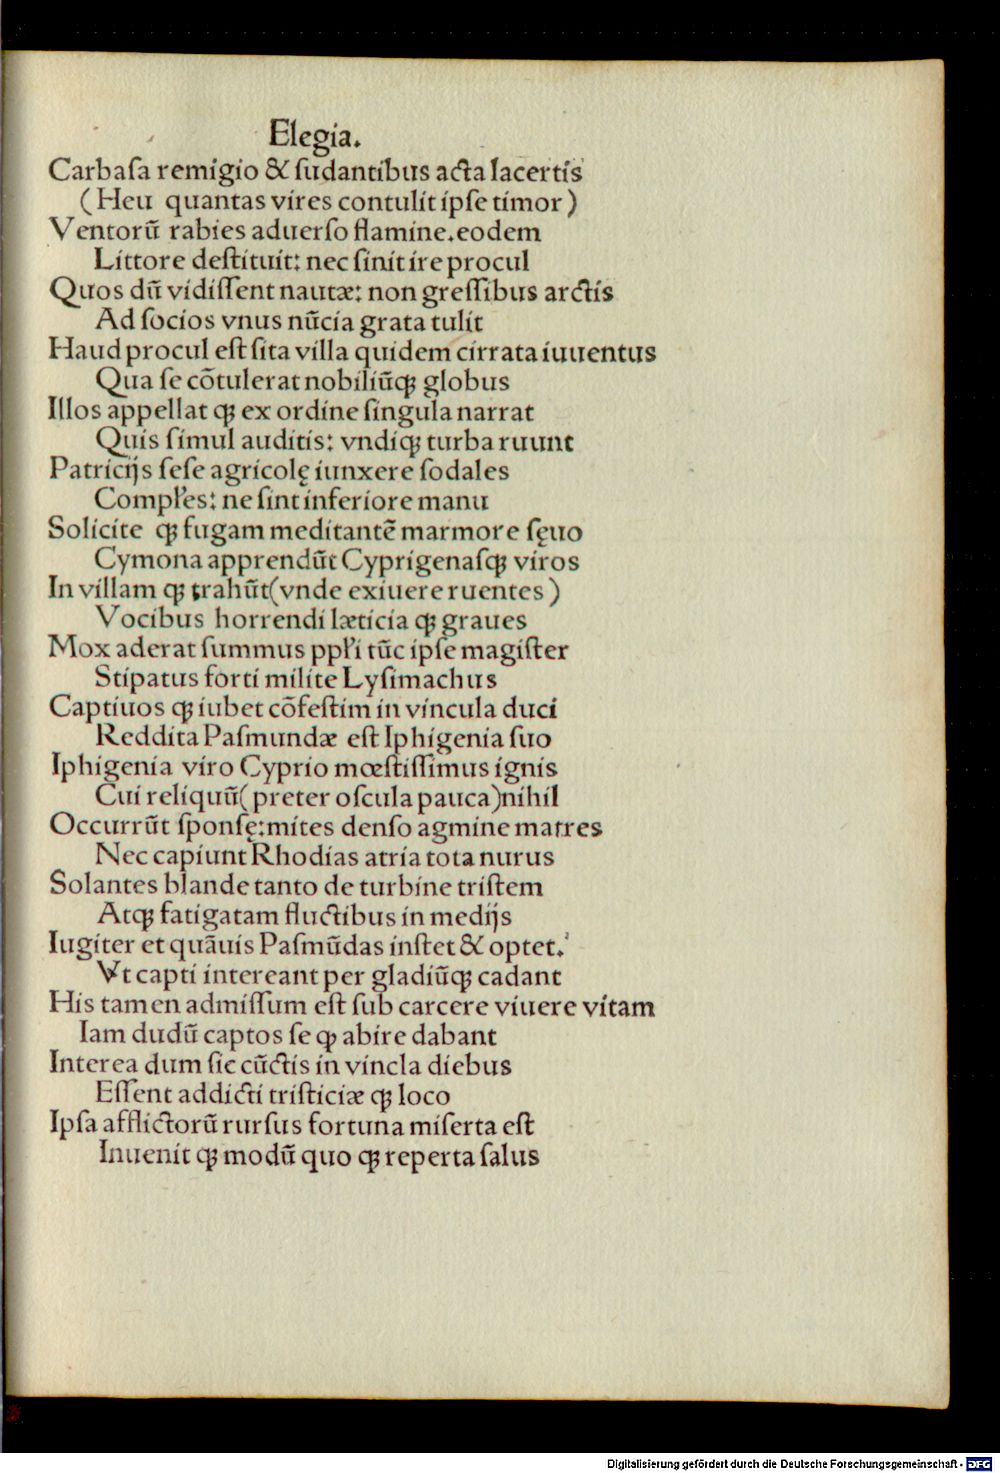 Elegia.
Carbaſa remigio & ſudantibus acta lacertis
(Heu quantas vires contulit ipſe timor)
Ventorũ rabies aduerſo flamine.eodem
Littore deſtituit: nec ſinit ire procul
Quos dũ vidiſſent nautæ: non greſſibus arctis
Ad ſocios vnus nũcia grata tulit
Haud procul eſt ſita villa quidem cirrata iuuentus
Qua ſe cõtulerat nobiliũꝙ globus
Illos appellat ꝙ ex ordine ſingula narrat
Quis ſimul auditis: vndiꝙ turba ruunt
Patricijs ſeſe agricolę iunxere ſodales
Compl'es: ne ſint inferiore manu
Solicite ꝙ fugam meditantẽ marmore ſęuo
Cymona apprendũt Cyprigenaſꝙ viros
In villam ꝙ trahũt(vnde exiuere ruentes)
Vocibus horrendi læticia ꝙ graues
Mox aderat ſummus ppl'i tũc ipſe magiſter
Stipatus forti milite Lyſimachus
Captiuos ꝙ iubet cõfeſtim in vincula duci
Reddita Paſmundæ eſt Iphigenia ſuo
Iphigenia viro Cyprio mœſtiſſimus ignis
Cui reliquũ(preter oſcula pauca)nihil
Occurrũt ſponſę:mites denſo agmine matres
Nec capiunt Rhodias atria tota nurus
Solantes blande tanto de turbine triſtem
Atꝙ fatigatam fluctibus in medijs
Iugiter et quãuis Paſmũdas inſtet & optet.
Vt capti intereant per gladiũꝙ cadant
His tamen admiſſum eſt ſub carcere viuere vitam
Iam dudũ captos ſe ꝙ abire dabant
Interea dum ſic cũctis in vincla diebus
Eſſent addicti triſticiæ ꝙ loco
Ipſa afflictorũ rurſus fortuna miſerta eſt
Inuenit ꝙ modũ quo ꝙ reperta ſalus
Digitalisierung gefördert durch die Deutsche Forschungsgemeinschaft - DFG